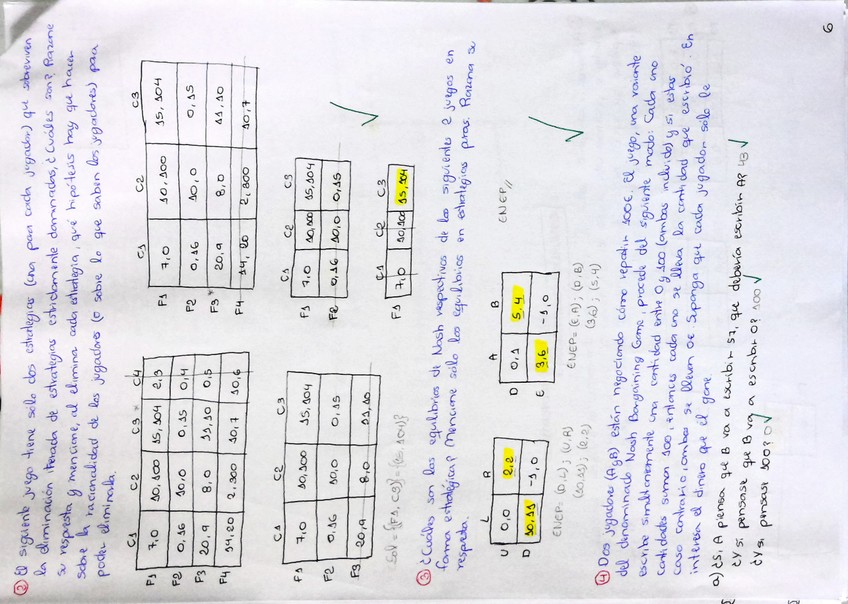 ② El siguiente juego tiene solo dos estrategias (una para cada jugador) que sobreviven
la eliminación iterada de estrategias estrictamente dominadas, ¿Cuáles son? Razone
su respuesta y mencione, al elimina cada estrategia, qué hipótesis hay que hacer
sobre la racionalidad de los jugadores (o sobre lo que saben los jugadores) para
poder eliminarla.
C1 C2 C3 C4
F1 7,0 10,100 15,104 2,3
F2 0,16 10,0 0,15 0,4
F3 20,9 8,0 11,10 0,5
F4 14,20 2,300 10,7 10,6
C1 C2 C3
F1 7,0 10,100 15,104
F2 0,16 10,0 0,15
F3 20,9 8,0 11,10
F4 14,20 2,300 10,7
C1 C2 C3
F1 7,0 10,100 15,104
F2 0,16 10,0 0,15
F3 20,9 8,0 11,10
C1 C2 C3
F1 7,0 10,100 15,104
F2 0,16 10,0 0,15
C1 C2 C3
F1 7,0 10,100 15,104
③ ¿Cuáles son los equilibrios de Nash respectivos de los siguientes 2 juegos en
forma estratégica? Mencione sólo los equilibrios en estrategias puras. Razona su
respuesta.
L R
U 0,0 2,2
D 10,11 -1,0
ENEP: (D,L) ; (U,R)
(10,11) ; (2,2)
A B
D 0,1 5,4
E 3,6 -1,0
ENEP = (E,A) ; (D,B)
(3,6) ; (5,4)
ENEP //
④ Dos jugadores (A y B) están negociando cómo repartir 100€. El juego, una variante
del denominado Nash Bargaining Game, procede del siguiente modo: Cada uno
escribe simultáneamente una cantidad entre 0 y 100 (ambas incluidas) y si, estas
cantidades suman 100, entonces cada uno se lleva la cantidad que escribió. En
caso contrario, ambos se llevan 0€. Suponga que cada jugador solo le
interesa el dinero que el gane.
a) ¿Si, A piensa que B va a escribir 57, que debería escribir A? 43
¿Y si, pensase que B va a escribir 0? 100
¿Y si, pensase 100? 0
6